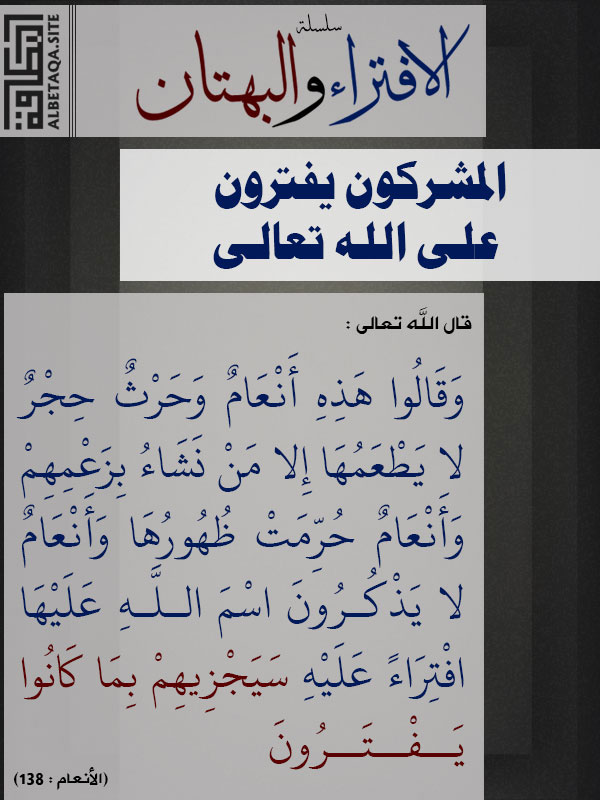 سلسلة
الافتراء والبهتان
البطاقة
ALBETAQA.SITE
المشركون يفترون
على الله تعالى
قال اللَّه تعالى :
وَقَالُوا هَذِهِ أَنْعَامٌ وَحَرْثٌ حِجْرٌ
لا يَطْعَمُهَا إِلا مَنْ نَشَاءُ بِزَعْمِهِمْ
وَأَنْعَامٌ حُرِّمَتْ ظُهُورُهَا وَأَنْعَامٌ
لا يَذْكُـرُونَ اسْمَ الـلَّـهِ عَلَيْهَا
افْتِرَاءً عَلَيْهِ سَيَجْزِيهِمْ بِمَا كَانُوا
يَـــفْـــتَـــرُونَ
(الأنعام : 138)